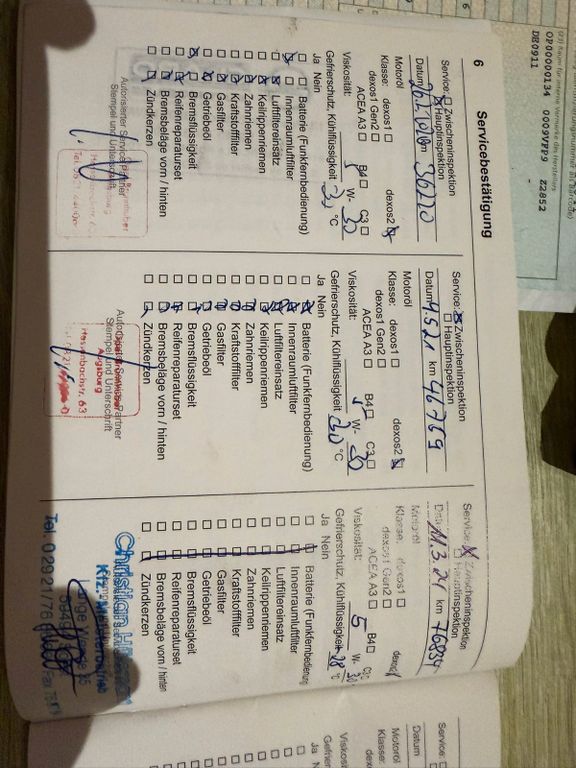 6
Servicebestätigung
Service: Zwischeninspektion
Hauptinspektion
Datum km 36220
Motoröl
Klasse: dexos1 dexos2
dexos1 Gen2
ACEA A3 B4 C3
Viskosität: 5 W- 30
Gefrierschutz, Kühlflüssigkeit °C
Ja Nein
Batterie (Funkfernbedienung)
Innenraumluftfilter
Luftfiltereinsatz
Keilrippenriemen
Zahnriemen
Kraftstofffilter
Gasfilter
Getriebeöl
Bremsflüssigkeit
Reifenreparaturset
Bremsbeläge vorn / hinten
Zündkerzen
Autorisierter Service Partner
Stempel und Unterschrift
Service: Zwischeninspektion
Hauptinspektion
Datum 4.5.21 km 46769
Motoröl
Klasse: dexos1 dexos2
dexos1 Gen2
ACEA A3 B4 C3
Viskosität: 5 W- 30
Gefrierschutz, Kühlflüssigkeit °C
Ja Nein
Batterie (Funkfernbedienung)
Innenraumluftfilter
Luftfiltereinsatz
Keilrippenriemen
Zahnriemen
Kraftstofffilter
Gasfilter
Getriebeöl
Bremsflüssigkeit
Reifenreparaturset
Bremsbeläge vorn / hinten
Zündkerzen
Service Partner
Stempel und Unterschrift
Augsburg
63
Service: Zwischeninspektion
Hauptinspektion
Datum 11.3.24 km 76834
Motoröl
Klasse: dexos1
dexos1 Gen2
ACEA A3 B4
Viskosität: 5 W- 30
Gefrierschutz, Kühlflüssigkeit -28 °C
Ja Nein
Batterie (Funkfernbedienung
Innenraumluftfilter
Luftfiltereinsatz
Keilrippenriemen
Zahnriemen
Kraftstofffilter
Gasfilter
Getriebeöl
Bremsflüssigkeit
Reifenreparaturset
Bremsbeläge vorn / hinten
Zündkerzen
Christian
Kfz.-Meisterbetrieb
Lange Wende 35
Tel. 0 29 21/76
Service:
Datum
Motoröl
Klasse:
OP00000134 0009VFP9 22852
DE0911